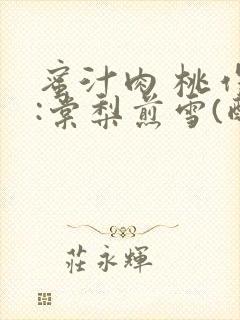 蜜汁肉桃作
:棠梨煎雪(酥
莊永輝